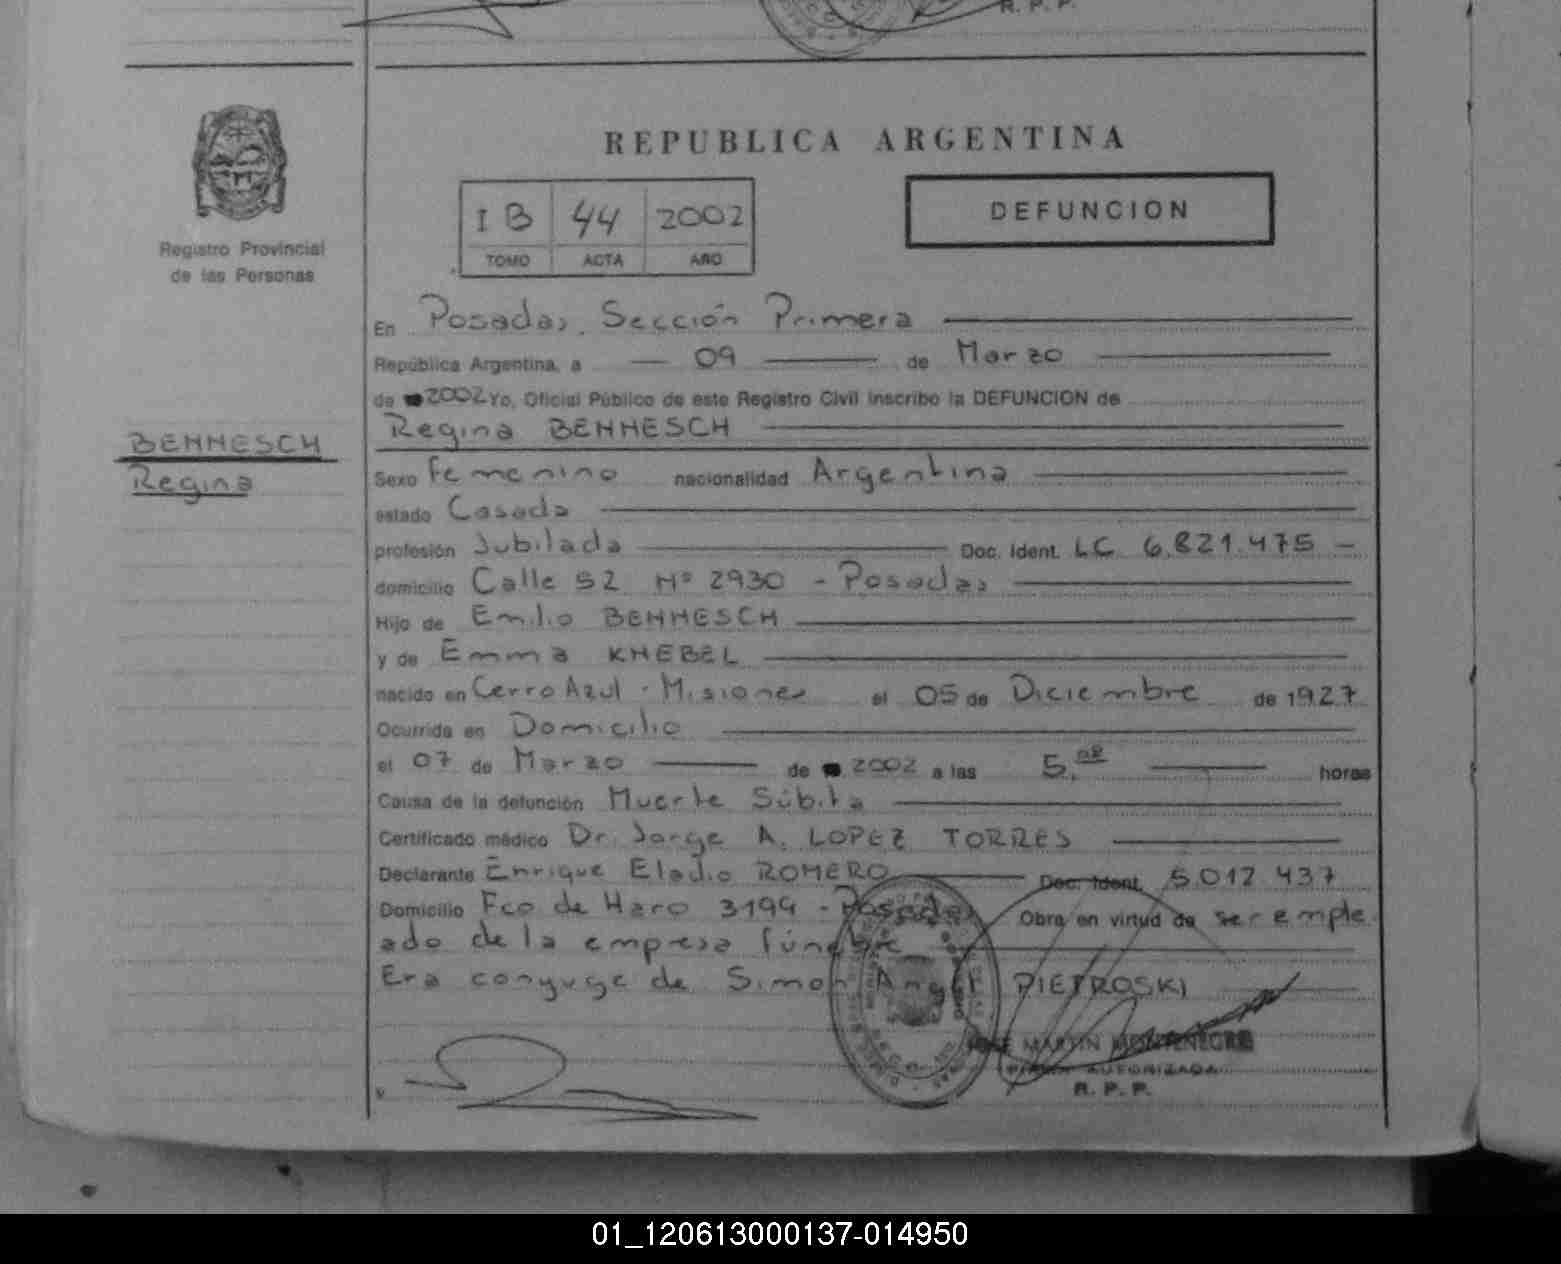 R. P. P.
REPUBLICA ARGENTINA
I B 44 2002
TOMO ACTA AÑO
DEFUNCION
Registro Provincial
de las Personas
BENNESCH
Regina
En Posadas, Sección Primera
República Argentina, a 09 de Marzo
de 2002 Yo, Oficial Público de este Registro Civil inscribo la DEFUNCION de
Regina BENNESCH
Sexo Femenino nacionalidad Argentina
estado Casada
profesión Jubilada Doc. Ident. LC 6.821.475
domicilio Calle 52 Nº 2930 - Posadas
Hijo de Emilio BENNESCH
y de Emma KNEBEL
nacido en Cerro Azul - Misiones el 05 de Diciembre de 1927
Ocurrida en Domicilio
el 07 de Marzo de 2002 a las 5, horas
Causa de la defunción Muerte Súbita
Certificado médico Dr. Jorge A. LOPEZ TORRES
Declarante Enrique Eladio ROMERO Doc. Ident. 5.012.437
Domicilio Fco de Haro 3199 - Posadas Obra en virtud de ser emple-
ado de la empresa fúnebre
Era conyuge de Simon Angel PIETROSKI
JOSE MARTIN MONTENEGRO
FIRMA AUTORIZADA
R. P. P.
01_120613000137-014950